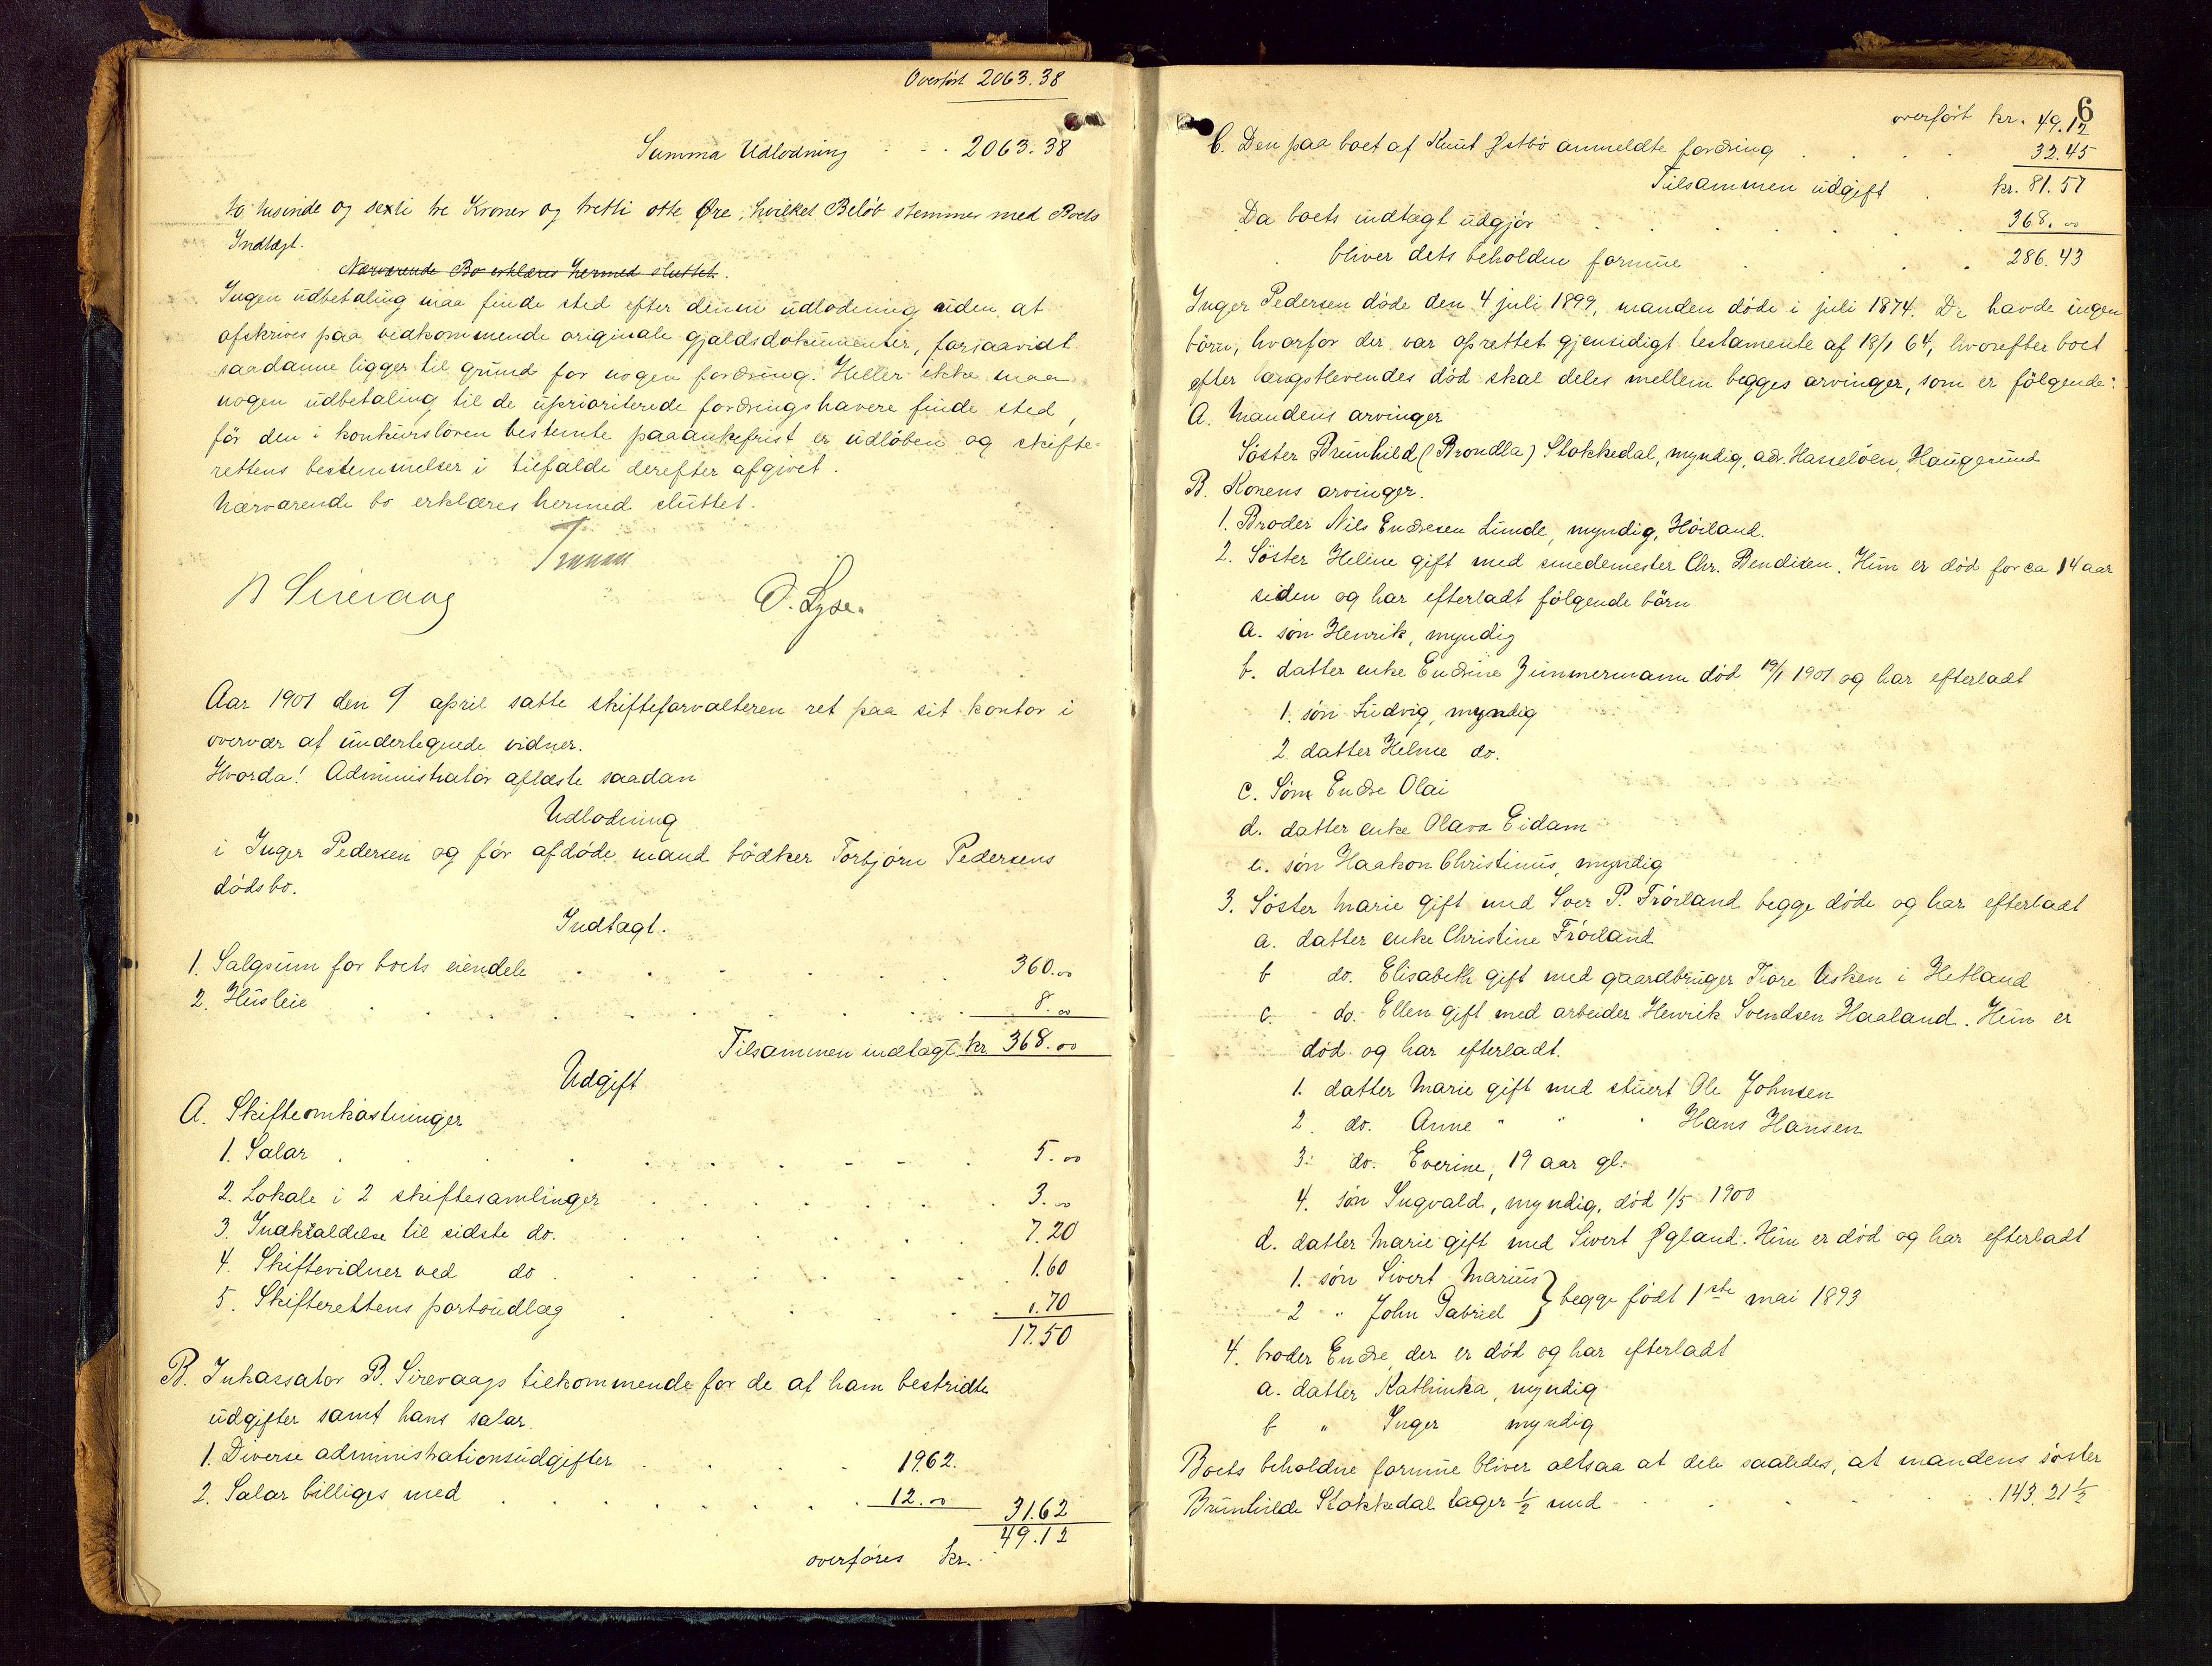 Overført 2063.38
Summa Udlodning - - - 2063.38
to tusinde og sexti tre Kroner og tretti otte Øre, hvilket Beløb stemmer med Boets
Indtægt.
Nærværende Bo erklæres hermed sluttet.
Ingen udbetaling maa finde sted efter denne udlodning uden at
afskrives paa vedkommende originale gjældsdokumenter, forsaavidt
saadanne ligger til grund for nogen fordring. Heller ikke maa
nogen udbetaling til de uprioriterede fordringshavere finde sted,
før den i konkursloven bestemte paaankefrist er udløben og skifte-
rettens bestemmelser i tilfælde derefter afgivet.
Nærværende bo erklæres hermed sluttet.
B Sirevaag O. Lyse.
Aar 1901 den 9 april satte skifteforvalteren ret paa sit kontor i
overvær af undertegnede vidner.
Hvorda! Administrator aflæste saadan
Udlodning
i Inger Pedersen og før afdøde mand bødker Torbjørn Pedersens
dødsbo.
Indtægt.
1. Salgssum for boets eiendele 360.00
2. Husleie 8.00
Tilsammen indtægt kr. 368.00
Udgift
A. Skifteomkostninger
1. Salar 5.00
2. Lokale i 2 skiftesamlinger 3.00
3. Indkaldelse til sidste do. 7.20
4. Skiftevidner ved do 1.60
5. Skifterettens portoudlæg 0.70
17.50
B. Inkassator B. Sirevaags tilkommende for de af ham bestridte
udgifter samt hans salar.
1. Diverse administrationsudgifter 19.62.
2. Salar billiges med 12.00 31.62
49.12
overføres kr.
6
overført kr. 49.12
C. Den paa boet af Knut Østbø anmeldte fordring 32.45
Tilsammen udgift kr. 81.57
Da boets indtægt udgjør 368.00
bliver dets beholdne formue 286.43
Inger Pedersen døde den 4 juli 1899, manden døde i juli 1874. De havde ingen
børn, hvorfor der var oprettet gjensidigt testamente af 18/1 64, hvorefter boet
efter længstlevendes død skal deles mellem begges arvinger, som er følgende:
A. Mandens arvinger
Søster Brünhild (Brondla) Stokkedal, myndig, adr. Hasseløen, Haugesund
B. Konens arvinger.
1. Broder Nils Endresen Lunde, myndig, Høiland.
2. Søster Heline gift med smedemester Chr. Bendixen. Hun er død for ca 14 aar
siden og har efterladt følgende børn
a. søn Henrik, myndig
b. datter enke Endrine Zimmermann død 19/1 1901 og har efterladt
1. søn Ludvig, myndig
2. datter Helene do.
c. Søn Endre Olai
d. datter enke Olava Eidam
e. søn Haakon Christinus, myndig
3. Søster Marie gift med Soer P. Frøiland begge døde og har efterladt
a. datter enke Christine Frøiland
b do. Elisabeth gift med gaardbruger Tore Usken i Hetland
c. do. Ellen gift med arbeider Henrik Svendsen Haaland. Hun er
død og har efterladt.
1. datter Marie gift med stuert Ole Johnsen
2. do. Anne " " " Hans Hansen
3. do. Everine, 19 aar gl.
4. søn Ingvald, myndig, død 1/5 1900
d. datter Marie gift med Sivert Øgland. Hun er død og har efterladt
1. søn Sivert Marius
2 " John Gabriel } begge født 1ste mai 1893
4. broder Endre, der er død og har efterladt
a. datter Kathinka, myndig
b " Inger myndig
Boets beholdne formue bliver altsaa at dele saaledes, at mandens søster
Brünhilde Stokkedal tager 1/2 med 143.21 1/2